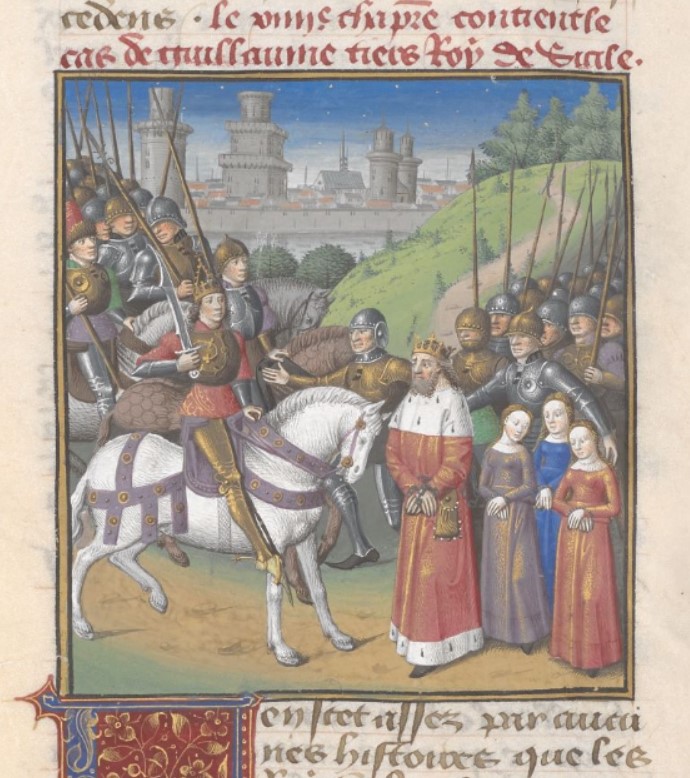 cedens · le chapre contient le
cas de Guillaume tiers Roy de Sicile .
en scet assez par aucu
nes histoires que les